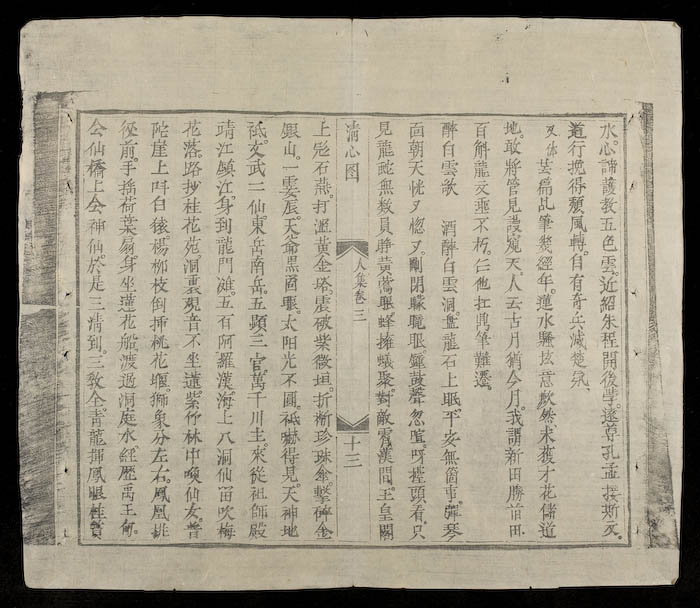 水心諦護教五色雲近紹朱程開後學遂尊孔孟接斯文
道行挽得頹風轉自有奇兵滅楚氛
又体 芸窗此筆幾經年道水驪垓意歉然未獲才花儲道
地敢將管見謾窺天人云古月猶今月我謂新田勝前田
百斛龍文垂不朽仁他扛鼎筆難遷
醉白雲歌 酒醉白雲洞盤龍石上眠平安無箇事彈琴
面朝天恍又惚又剛閉朦曨眼鍾鼓聲忽喧呀擡頭看只
見龍蛇無数員睜黃鶯眼蜂擁蟻聚對敵霄漢間王皇閣
上冠石燕打滋黃金塔震破紫微垣折斷珍珠傘擊碎金
銀山一霎辰天爺黑眉眼太阳光不圓祗嚇得見天神地
祇文武二仙東岳南岳五顯三官萬千川主來從祖師殿
靖江鎮江身到龍門灘五百阿羅漢海上八洞仙笛吹梅
花落路抄桂花苑洞裏观音不坐蓮紫竹林中喚仙女普
陀崖上呌白猿楊柳枝倒揷桃花堰獅象分左右鳳凰排
後前手搖荷葉扇身坐蓮花船渡過洞庭水經歷禹王
会仙橋上会神仙於是三清到三教全青龍揮鳳眼桂賞
清心图
人集卷三
十三